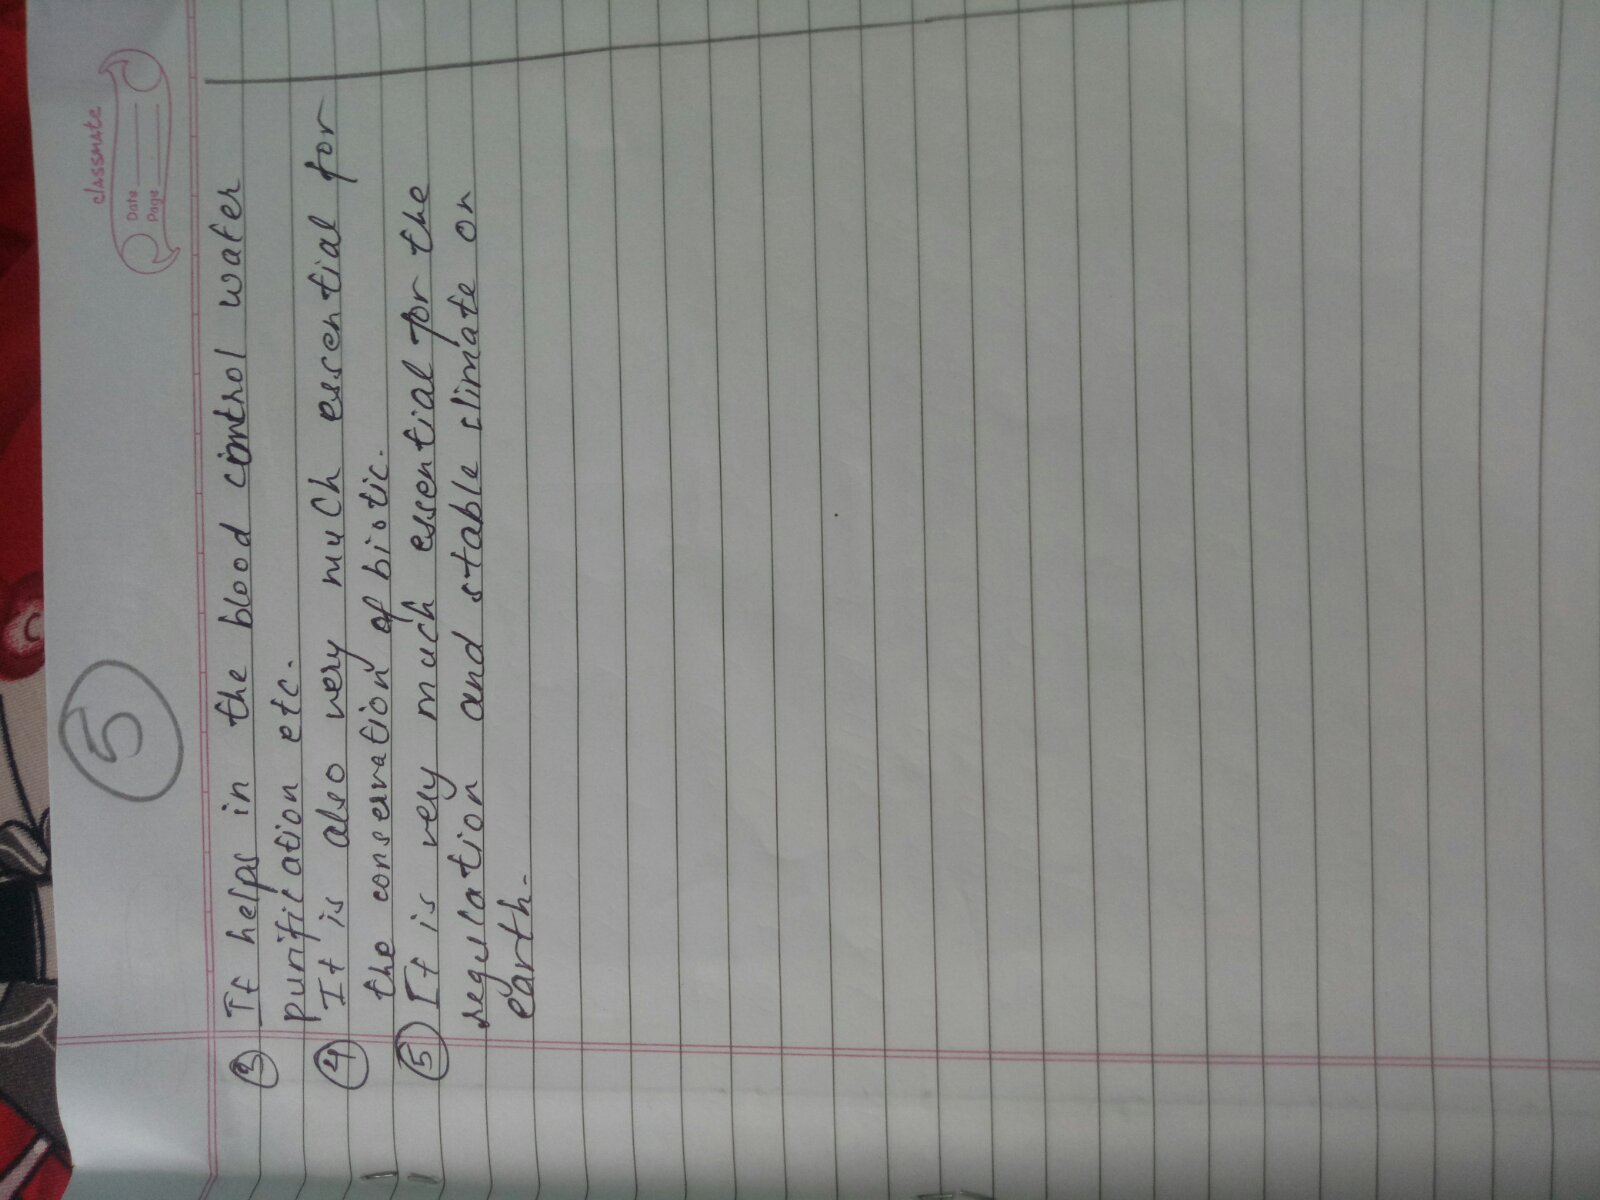 5
classmate
Date
Page
③ It helps in the blood control water
purification etc.
④ It is also very much escential for
the conservation of biotic.
⑤ It is very much essential for the
regulation and stable slimate on
earth.